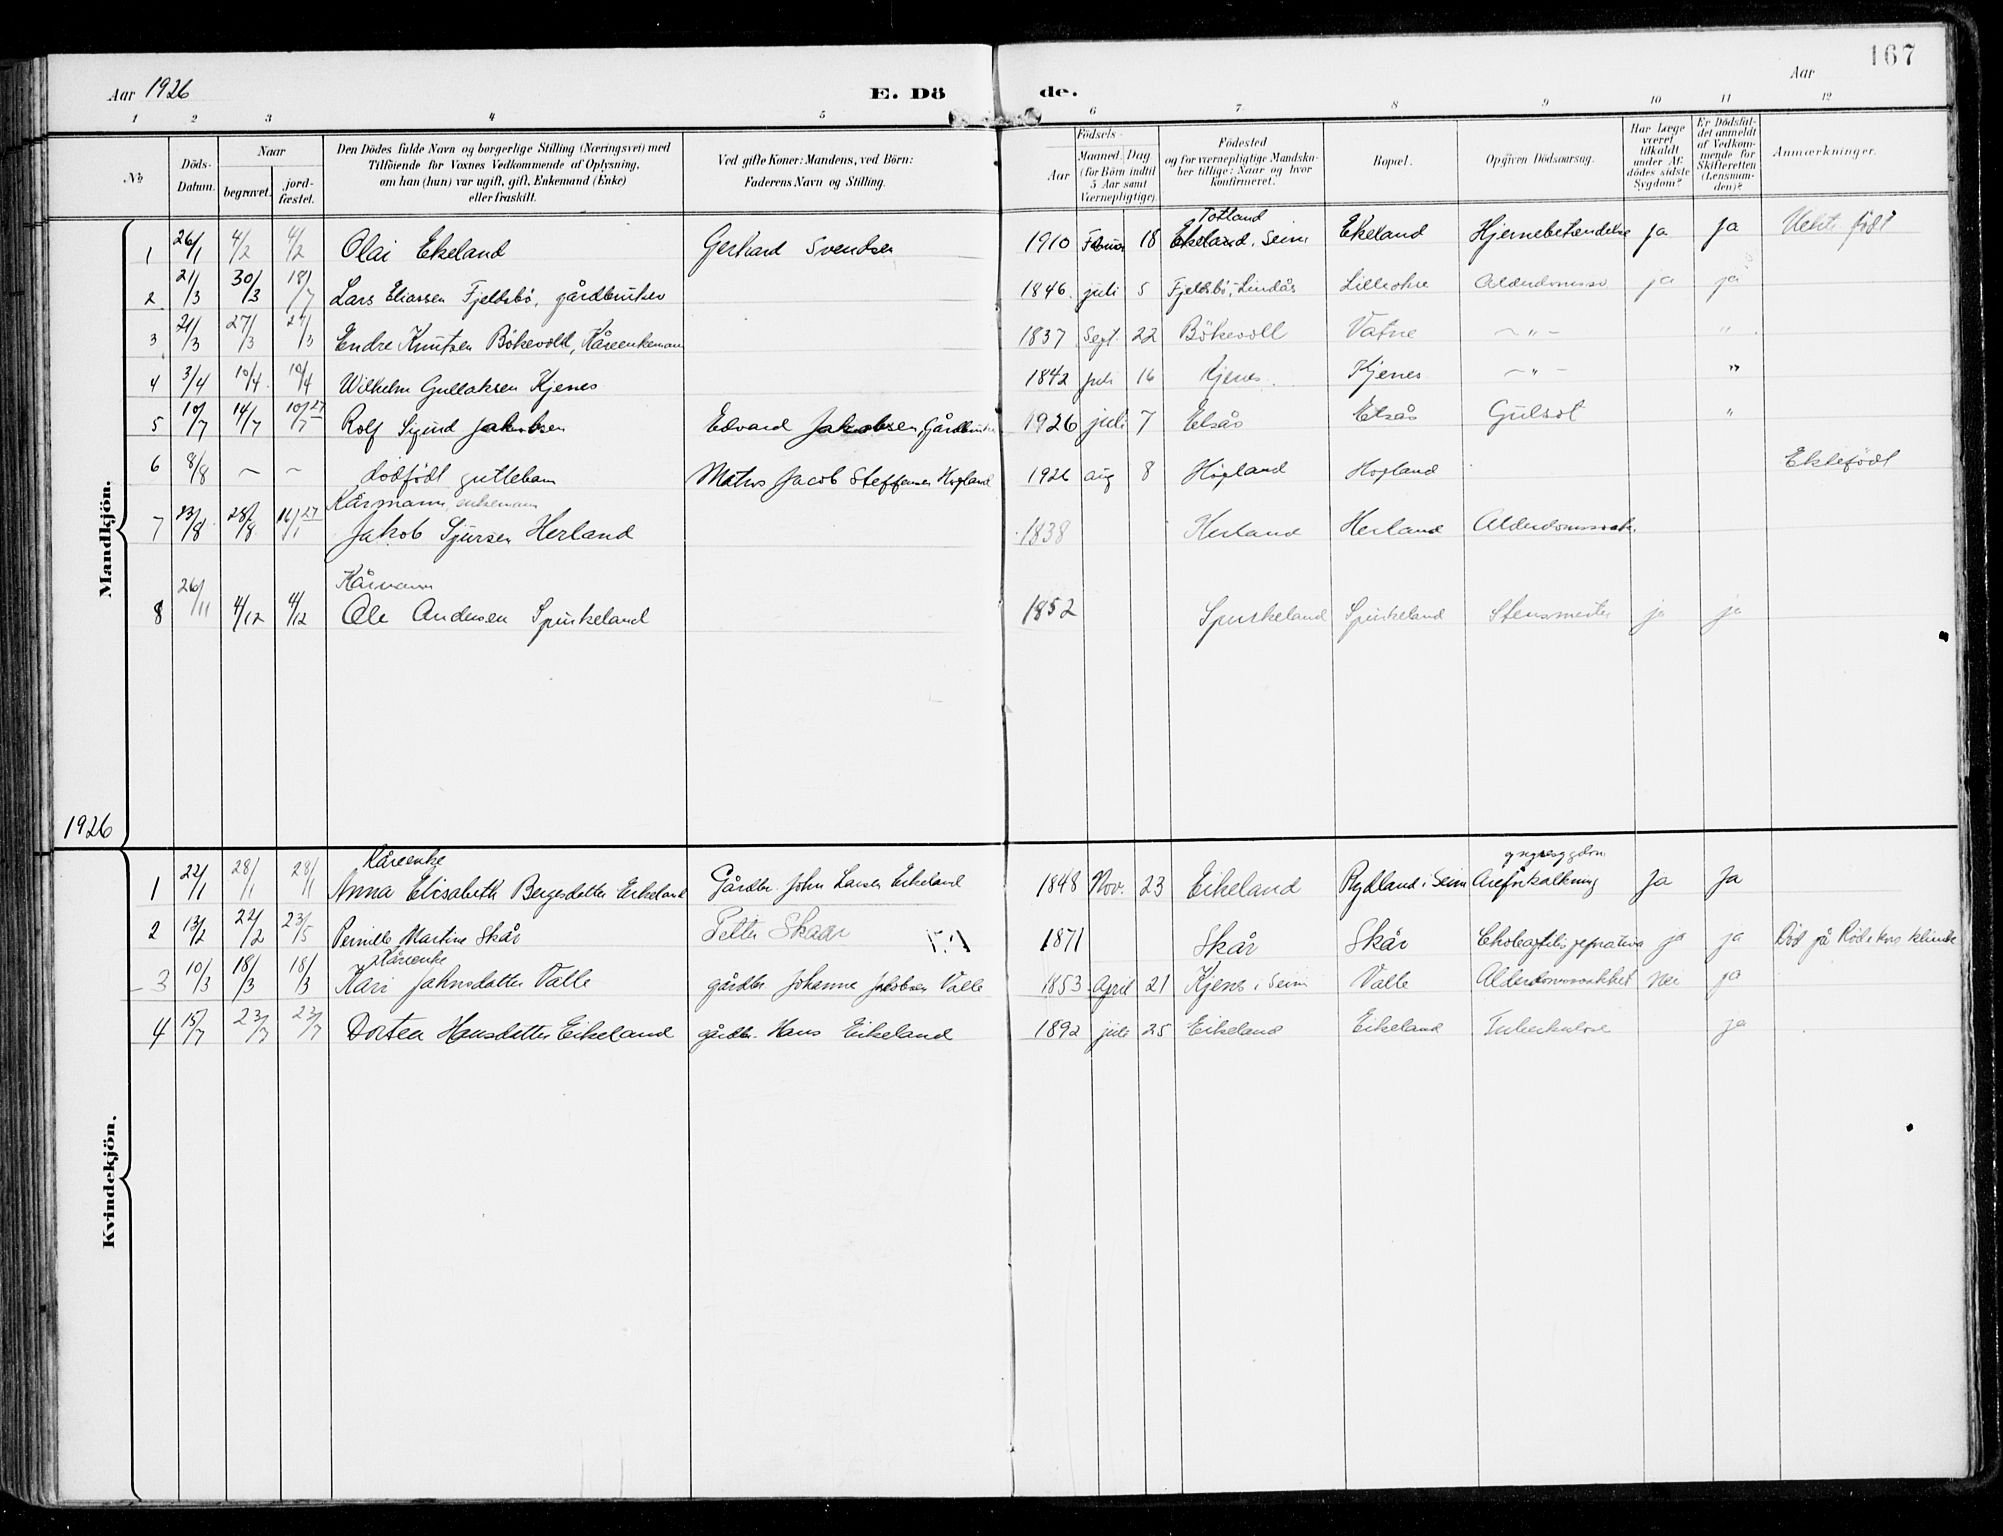 167
Aar 1926 E. Dö de. Aar
1 2 3 4 5 6 7 8 9 10 11 12
№ Döds-Datum. Naar begravet. jord-fæstet. Den Dödes fulde Navn og borgerlige Stilling (Næringsvei) med Tilföiende for Voxnes Vedkommende af Oplysning, om han (hun) var ugift, gift, Enkemand (Enke) eller fraskilt. Ved gifte Koner: Mandens, ved Börn: Faderens Navn og Stilling. Födsels- Aar Maaned. Dag (for Börn indtil 5 Aar samt Værnepligtige). Födested og for værnepligtige Mandskaber tillige: Naar og hvor Konfirmeret. Bopæl. Opgiven Dödsaarsag. Har Læge været tilkaldt under Afdödes sidste Sygdom? Er Dödsfaldet anmeldt af Vedkommende for Skifteretten (Lensmanden)? Anmærkninger.
Mandkjön.
Totland
1 26/1 4/2 4/2 Olai Ekeland Gerhard Svendsen 1910 18 Ekeland, Seim Ekeland Hjernebetendelse ja ja født
2 21/3 30/3 18/7 Lars Eliassen Fjeldsbö, gårdbruker 1846 juli 5 Fjeldsbö, Lindås ja ja
3 21/3 27/3 27/3 Endre Knutsen Bökevold, Kåreenkemann 1837 Sept. 22 Bökevoll Vatne — " — "
4 3/4 10/4 10/4 Wilhelm Gullaksen Kjenes 1842 Juli 16 Kjenes Kjenes — " — "
5 10/7 14/7 10/7 27 Rolf Jakobsen Edvard Jakobsen, Gårdbruker 1926 juli 7 Elsås Elsås Gulsot "
6 8/8 — — dödfödt guttebarn Jacob Steffensen Hopland 1926 aug 8 Hopland Hopland Ektefödt
Kårmann, enkemann
7 23/8 28/8 16/1 27 Jakob Sjursen Herland 1838 Herland Herland
Kårmann
8 26/11 4/12 4/12 Ole Andersen Spurkeland 1852 Spurkeland Spurkeland ja ja
1926
Kvindekjön.
Kåreenke
1 22/1 28/1 28/1 Anna Elisabeth Bergesdatter Eikeland Gårdbr. John Larsen Eikeland 1848 Nov. 23 Eikeland Rydland i Seim Areforkalkning Ja Ja
2 13/2 22/2 23/5 Pernille Martine Skår Petter Skaar 1871 Skår Skår ja ja Död på Röde kors klinik
Kårenke
3 10/3 18/3 18/3 Kari Jahnsdatter Valle gårdbr Johanne Jakobsen Valle 1853 April 21 Kjenes i Seim Valle Alderdomssvakhet Nei ja
4 15/7 23/7 23/7 Dortea Hansdatter Eikeland gårdbr. Hans Eikeland 1892 juli 25 Eikeland Eikeland Tuberkulose ja